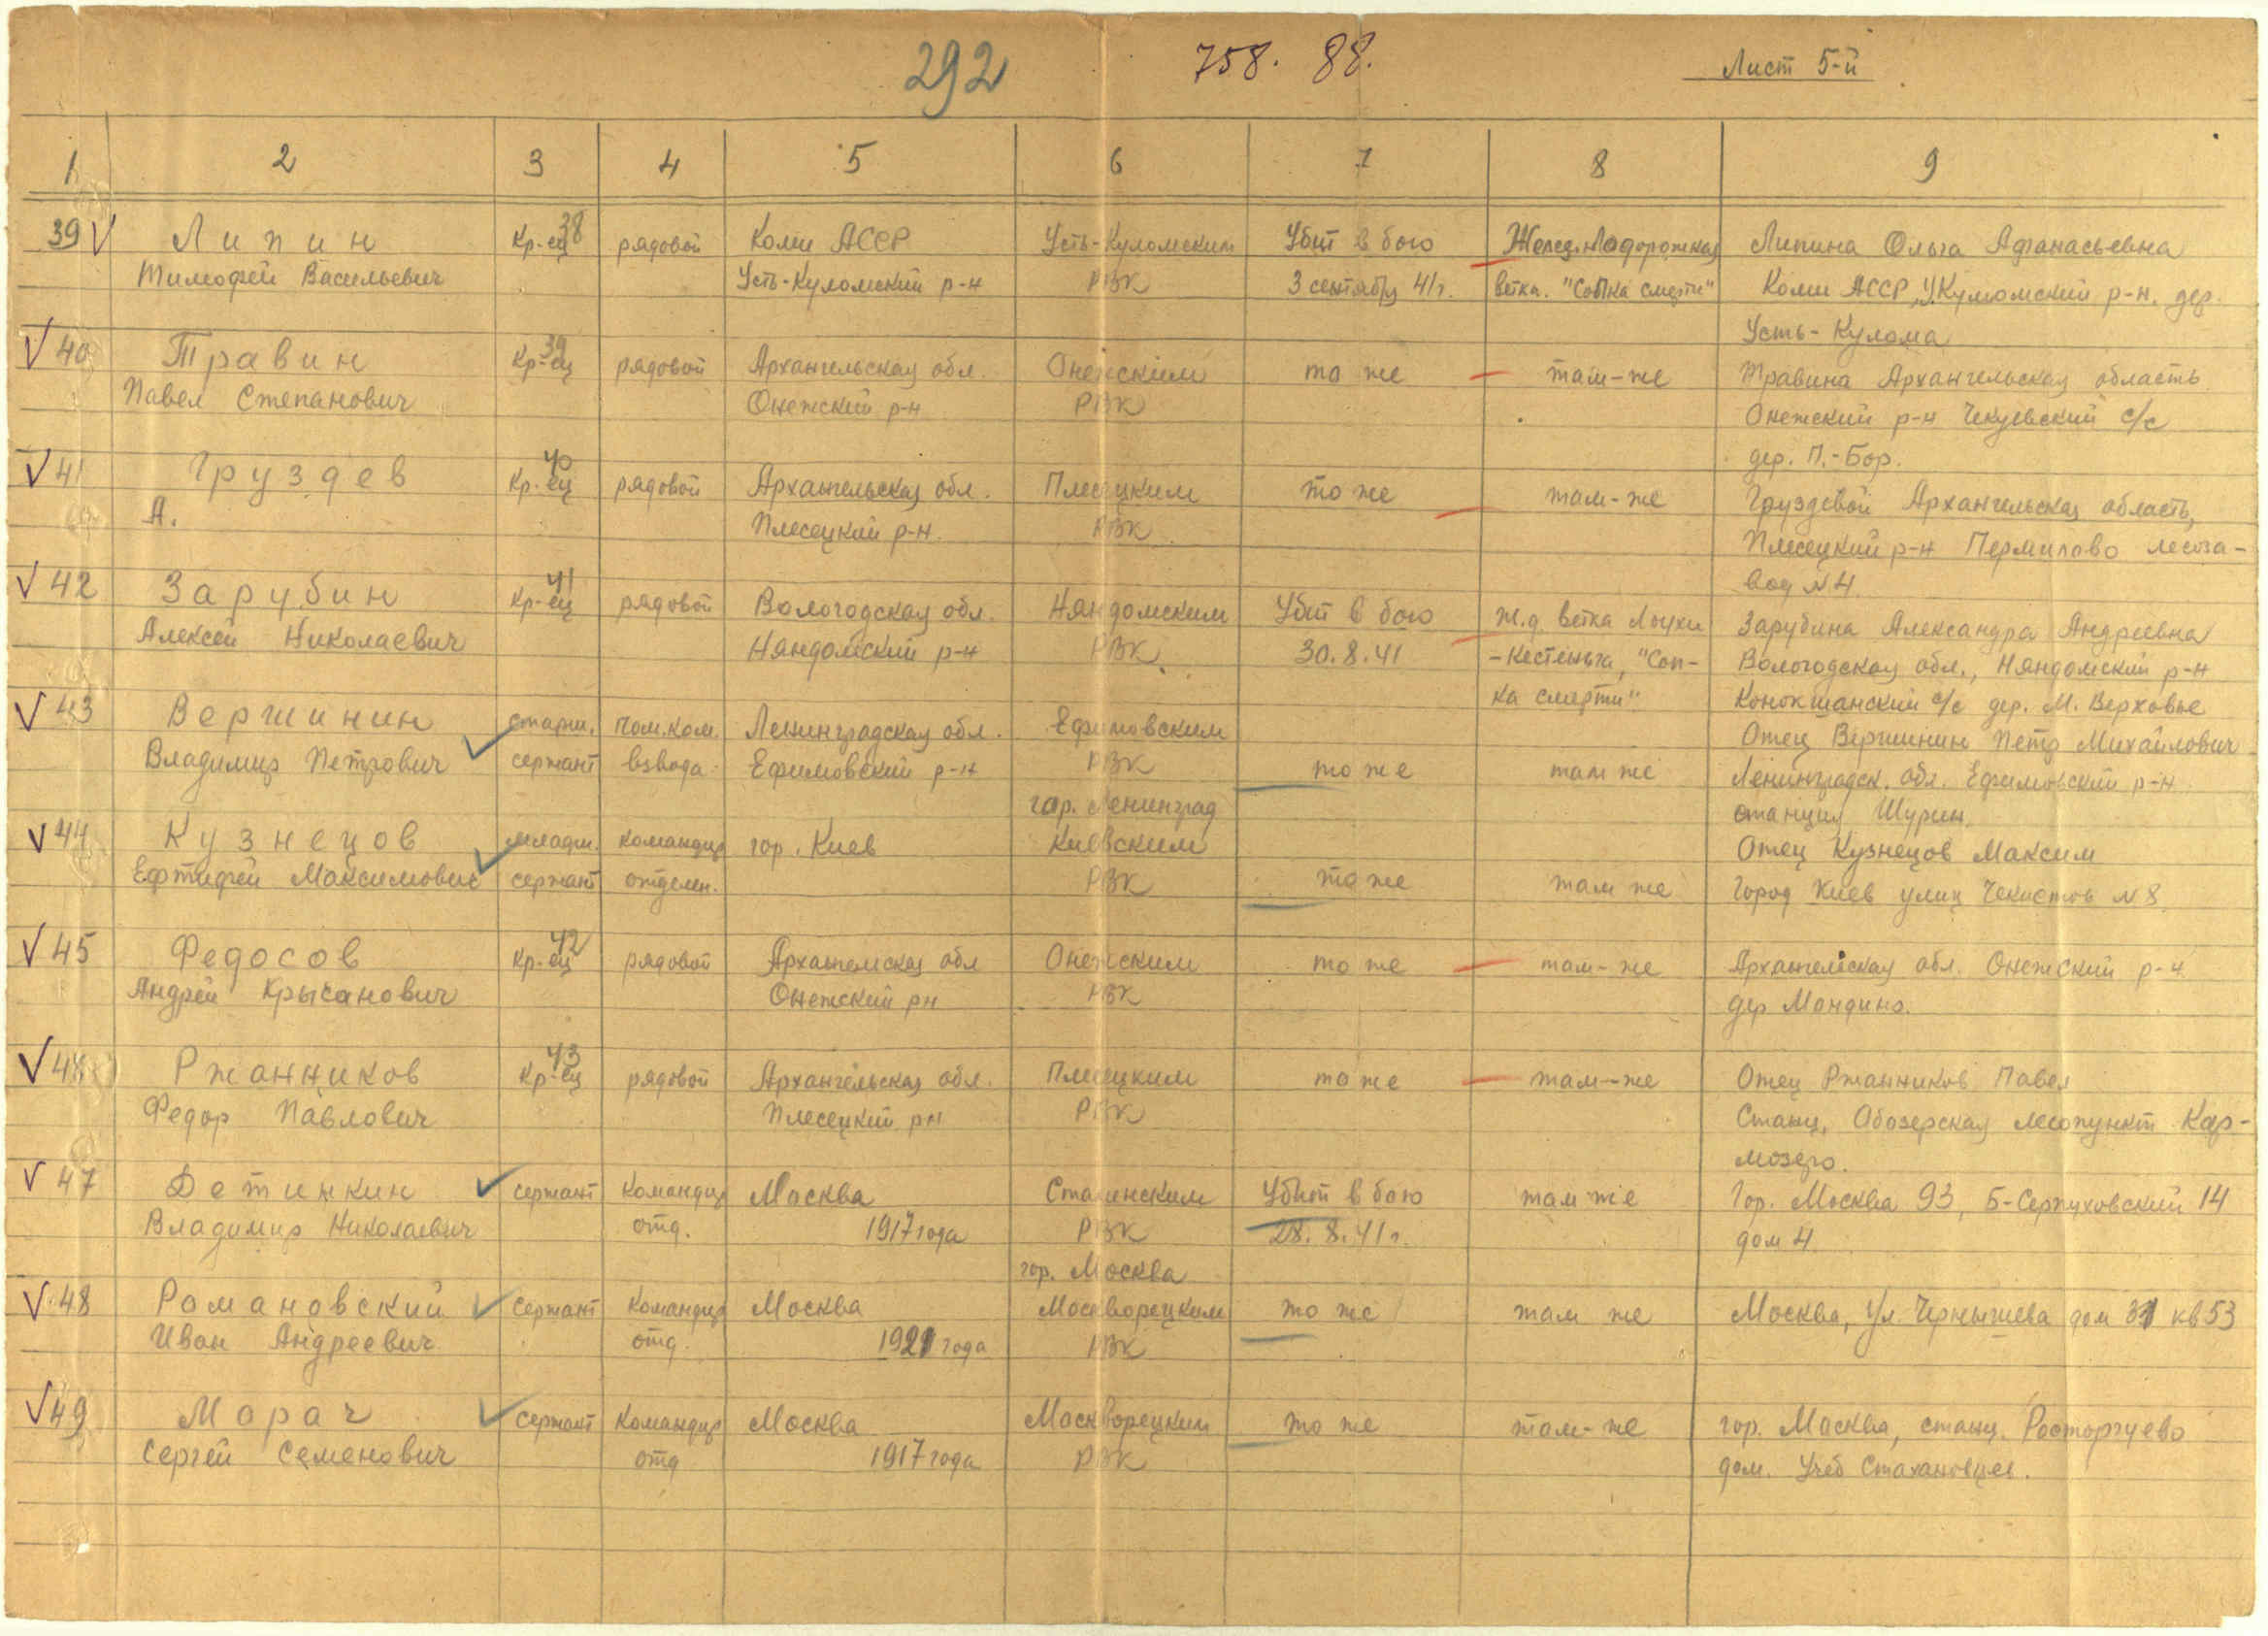 292
758. 88.
Лист 5-й
1 2 3 4 5 6 7 8 9
39 Липин Кр-ец 38 рядовой Коми АССР Усть-Куломским Убит в бою Желез.нодорожная Липина Ольга Афанасьевна
Тимофей Васильевич Усть-Куломский р-н РВК 3 сентября 41г. ветка. "Сопка смерти" Коми АССР, У.Куломский р-н. дер.
Усть-Кулома
40 Травин Кр-ец 39 рядовой Архангельская обл. Онежским то же там-же Травина Архангельская область
Павел Степанович Онежский р-н РВК Онежский р-н Чекуевский с/с
дер. П.-Бор.
41 Груздев Кр-ец 40 рядовой Архангельская обл. Плесецким то же там-же Груздевой Архангельская область,
А. Плесецкий р-н. РВК Плесецкий р-н Пермилово лесоза-
вод №4
42 Зарубин Кр-ец 41 рядовой Вологодская обл. Няндомским Убит в бою ж.д. ветка Лоухи Зарубина Александра Андреевна
Алексей Николаевич Няндомский р-н РВК 30.8.41 -Кестеньга, "Соп- Вологодская обл., Няндомский р-н
ка смерти" Конокшанский с/с дер. М. Верховье
43 Вершинин старш. пом.ком. Ленинградская обл. Ефимовским Отец Вершинин Петр Михайлович
Владимир Петрович сержант взвода Ефимовский р-н РВК то же там же Ленинградск. обл. Ефимовский р-н
гор. Ленинград станция Шурин.
44 Кузнецов младш. командир гор. Киев Киевским Отец Кузнецов Максим
Ефтифей Максимович сержант отделен. РВК то же там же Город Киев улиц Чекистов №8
45 Федосов Кр-ец 42 рядовой Архангельская обл Онежским то же там-же Архангельская обл. Онежский р-н
Андрей Крысанович Онежский рн РВК дер Мондино.
46 Ржанников Кр-ец 43 рядовой Архангельская обл. Плесецким то же там-же Отец Ржанников Павел
Федор Павлович Плесецкий рн РВК Станц. Обозерская лесопункт Кар-
мозеро.
47 Детинкин сержант Командир Москва Сталинским Убит в бою там же Гор. Москва 93, Б-Серпуховский 14
Владимир Николаевич отд. 1917 года РВК 28.8.41г. дом 4
гор. Москва
48 Романовский Сержант Командир Москва Москворецким то же там же Москва, Ул. Чернышева дом 31 кв 53
Иван Андреевич отд. 1921 года РВК
49 Морач Сержант Командир Москва Москворецким то же там-же гор. Москва, станц. Расторгуево
Сергей Семенович отд 1917 года РВК дом. Учеб Стахановцев.